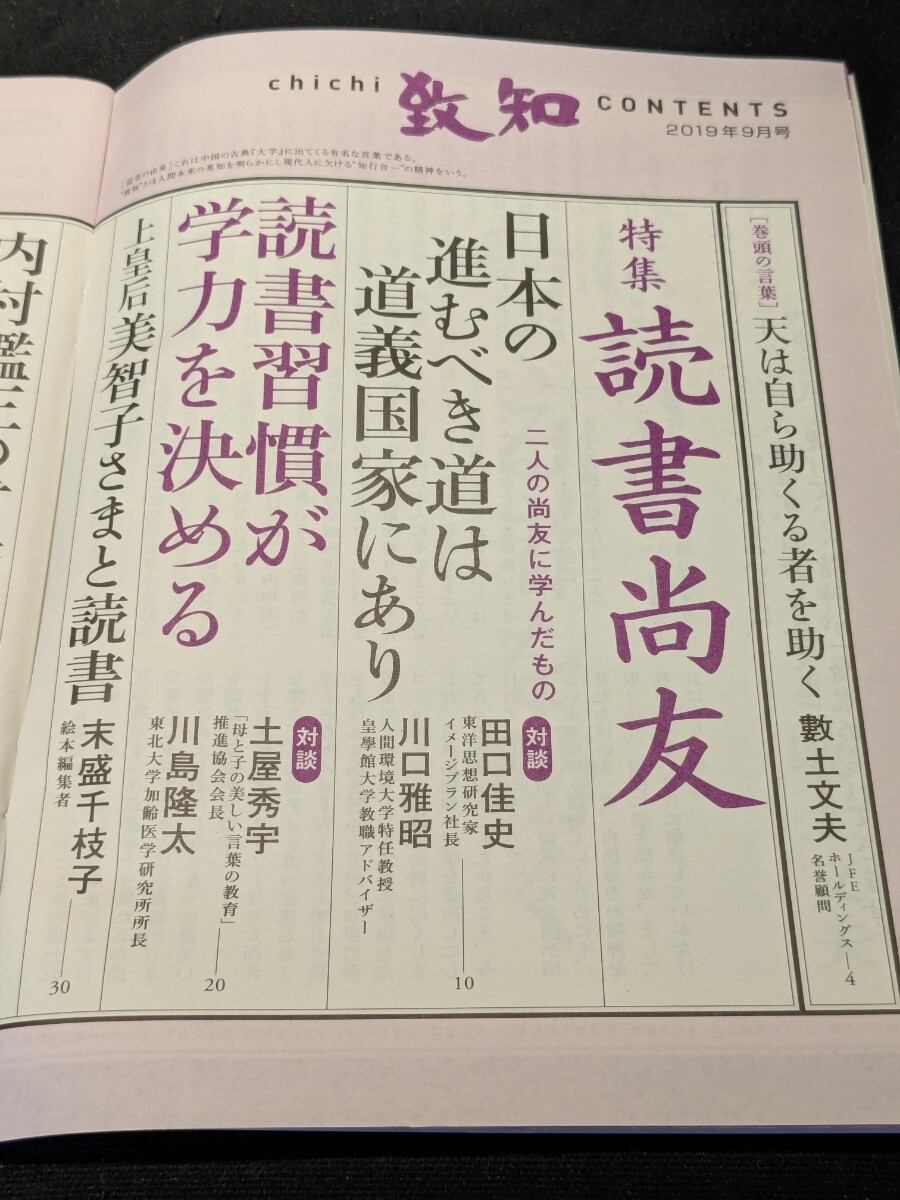 chichi 致知 CONTENTS
2019年9月号
[誌名の由来]これは中国の古典『大学』に出てくる有名な言葉である。
"致知"とは人間本来の英知を明らかにし現代人に欠ける"知行合一"の精神をいう。
[巻頭の言葉]天は自ら助くる者を助く
數土文夫
JFE
ホールディングス
名誉顧問
4
特集
読書尚友
二人の尚友に学んだもの
日本の
進むべき道は
道義国家にあり
対談
田口佳史
東洋思想研究家
イメージプラン社長
川口雅昭
人間環境大学特任教授
皇學館大学教職アドバイザー
10
読書習慣が
学力を決める
対談
土屋秀宇
「母と子の美しい言葉の教育」
推進協会会長
川島隆太
東北大学加齢医学研究所所長
20
上皇后美智子さまと読書
末盛千枝子
絵本編集者
30
内村鑑三の